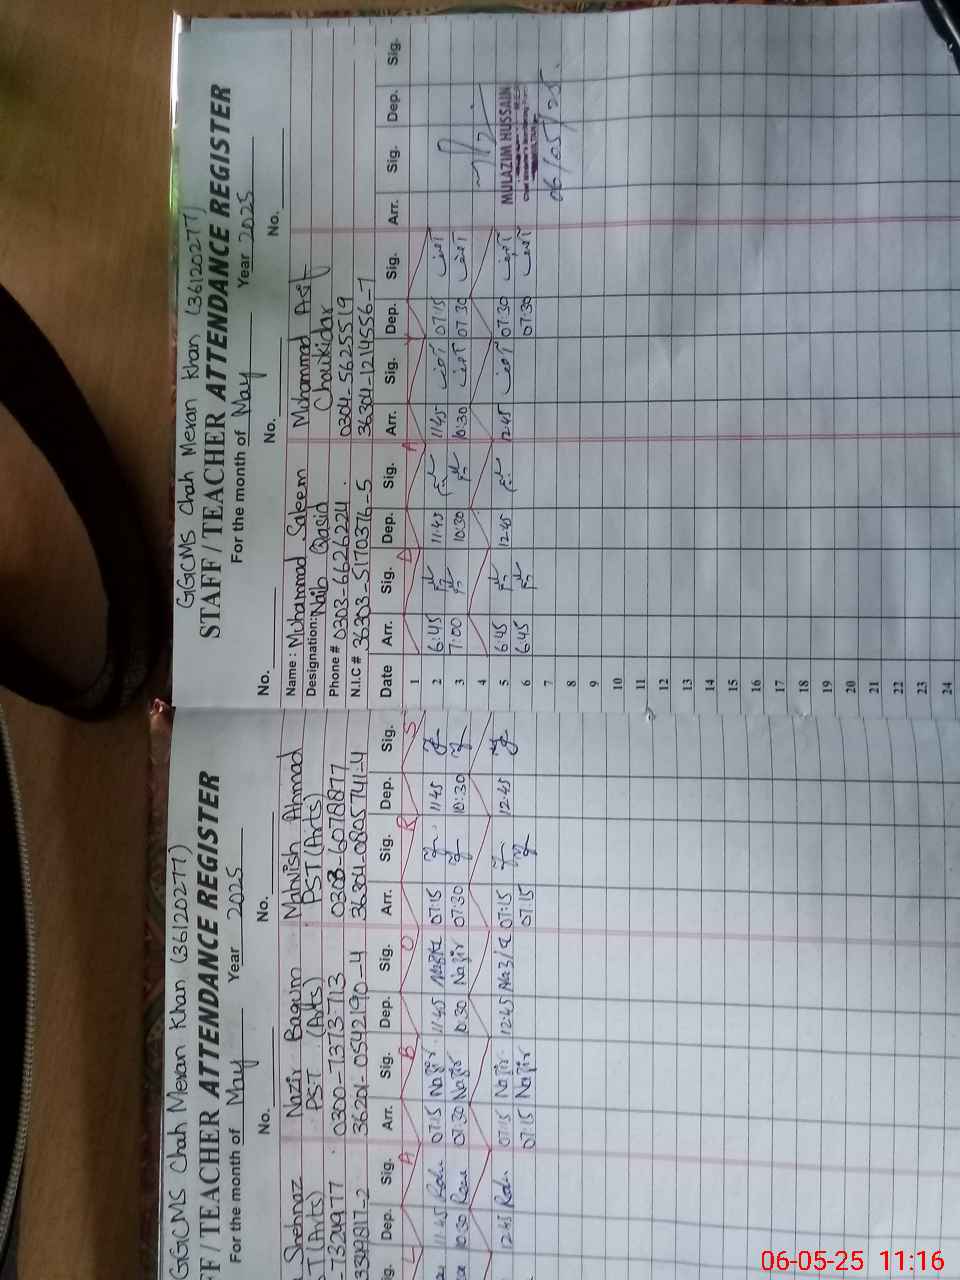 GGCMS Chah Meran Khan (36120277)
FF / TEACHER ATTENDANCE REGISTER
For the month of May Year 2025
No. No.
Shehnaz Nazir Begum Mahwish Ahmad
(Arts) PST (Arts) PST (Arts)
-7324977 0300-7373713 0308-6078877
36201-0542190-4 36304-0805741-4
Sig. Dep. Sig. Arr. Sig. Dep. Sig. Arr. Sig. Dep. Sig.
L A B O R S
11:45 07:15 Nazir 11:45 07:15 11:45
10:30 07:30 Nazir 10:30 Nazir 07:30 10:30
12:45 07:15 Nazir 12:45 07:15 12:45
07:15 Nazir 07:15
GGCMS Chah Meran Khan (36120277)
STAFF / TEACHER ATTENDANCE REGISTER
For the month of May Year 2025
No. No. No.
Name : Muhammad Saleem Muhammad Asif
Designation: Naib Qasid Chowkidar
Phone # 0303-6626224 0304-5625519
N.I.C # 36303-5170376-5 36304-1214556-7
Date Arr. Sig. Dep. Sig. Arr. Sig. Dep. Sig. Arr. Sig. Dep. Sig.
1
2 6:45 11:45 11:45 آصف 07:15 آصف
3 7:00 10:30 10:30 آصف 07:30 آصف
4
5 6:45 12:45 12:45 آصف 07:30 آصف
6 6:45 07:30 آصف
7
8
9
10
11
12
13
14
15
16
17
18
19
20
21
22
23
24
MULAZIM HUSSAIN
06/05/25
06-05-25 11:16